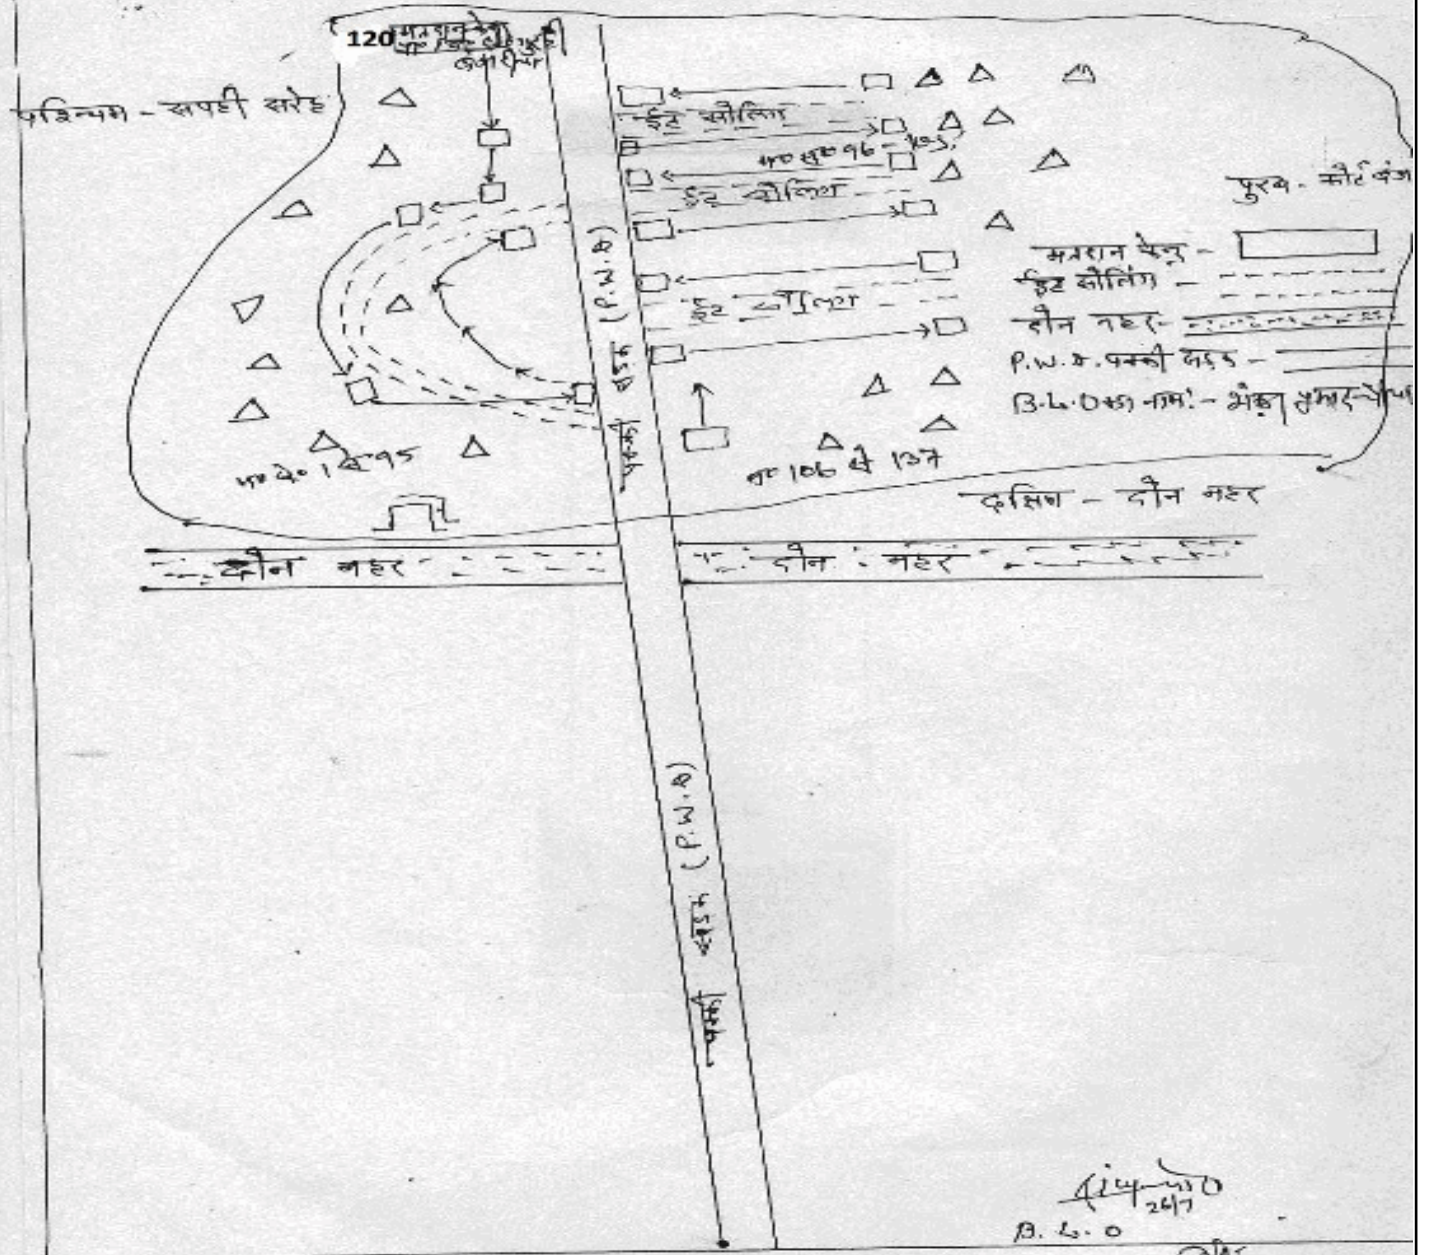 120 मतदान केन्द्र
पश्चिम - सपही सरेह
ईट सोलिंग
म० सं० 96 - 105
ईट सोलिंग
पुरब - कोर्ट
मतदान केन्द्र -
ईट सोलिंग -
दोन नहर -
P.W.D. पक्की सड़क -
B.L.O का नाम: -
(P.W.D)
सड़क
पक्की
ईट सोलिंग
म० सं० 1 से 95
म० 106 से 137
दक्षिण - दोन नहर
दोन नहर
दोन नहर
(P.W.D)
सड़क
पक्की
26/7
B.L.O